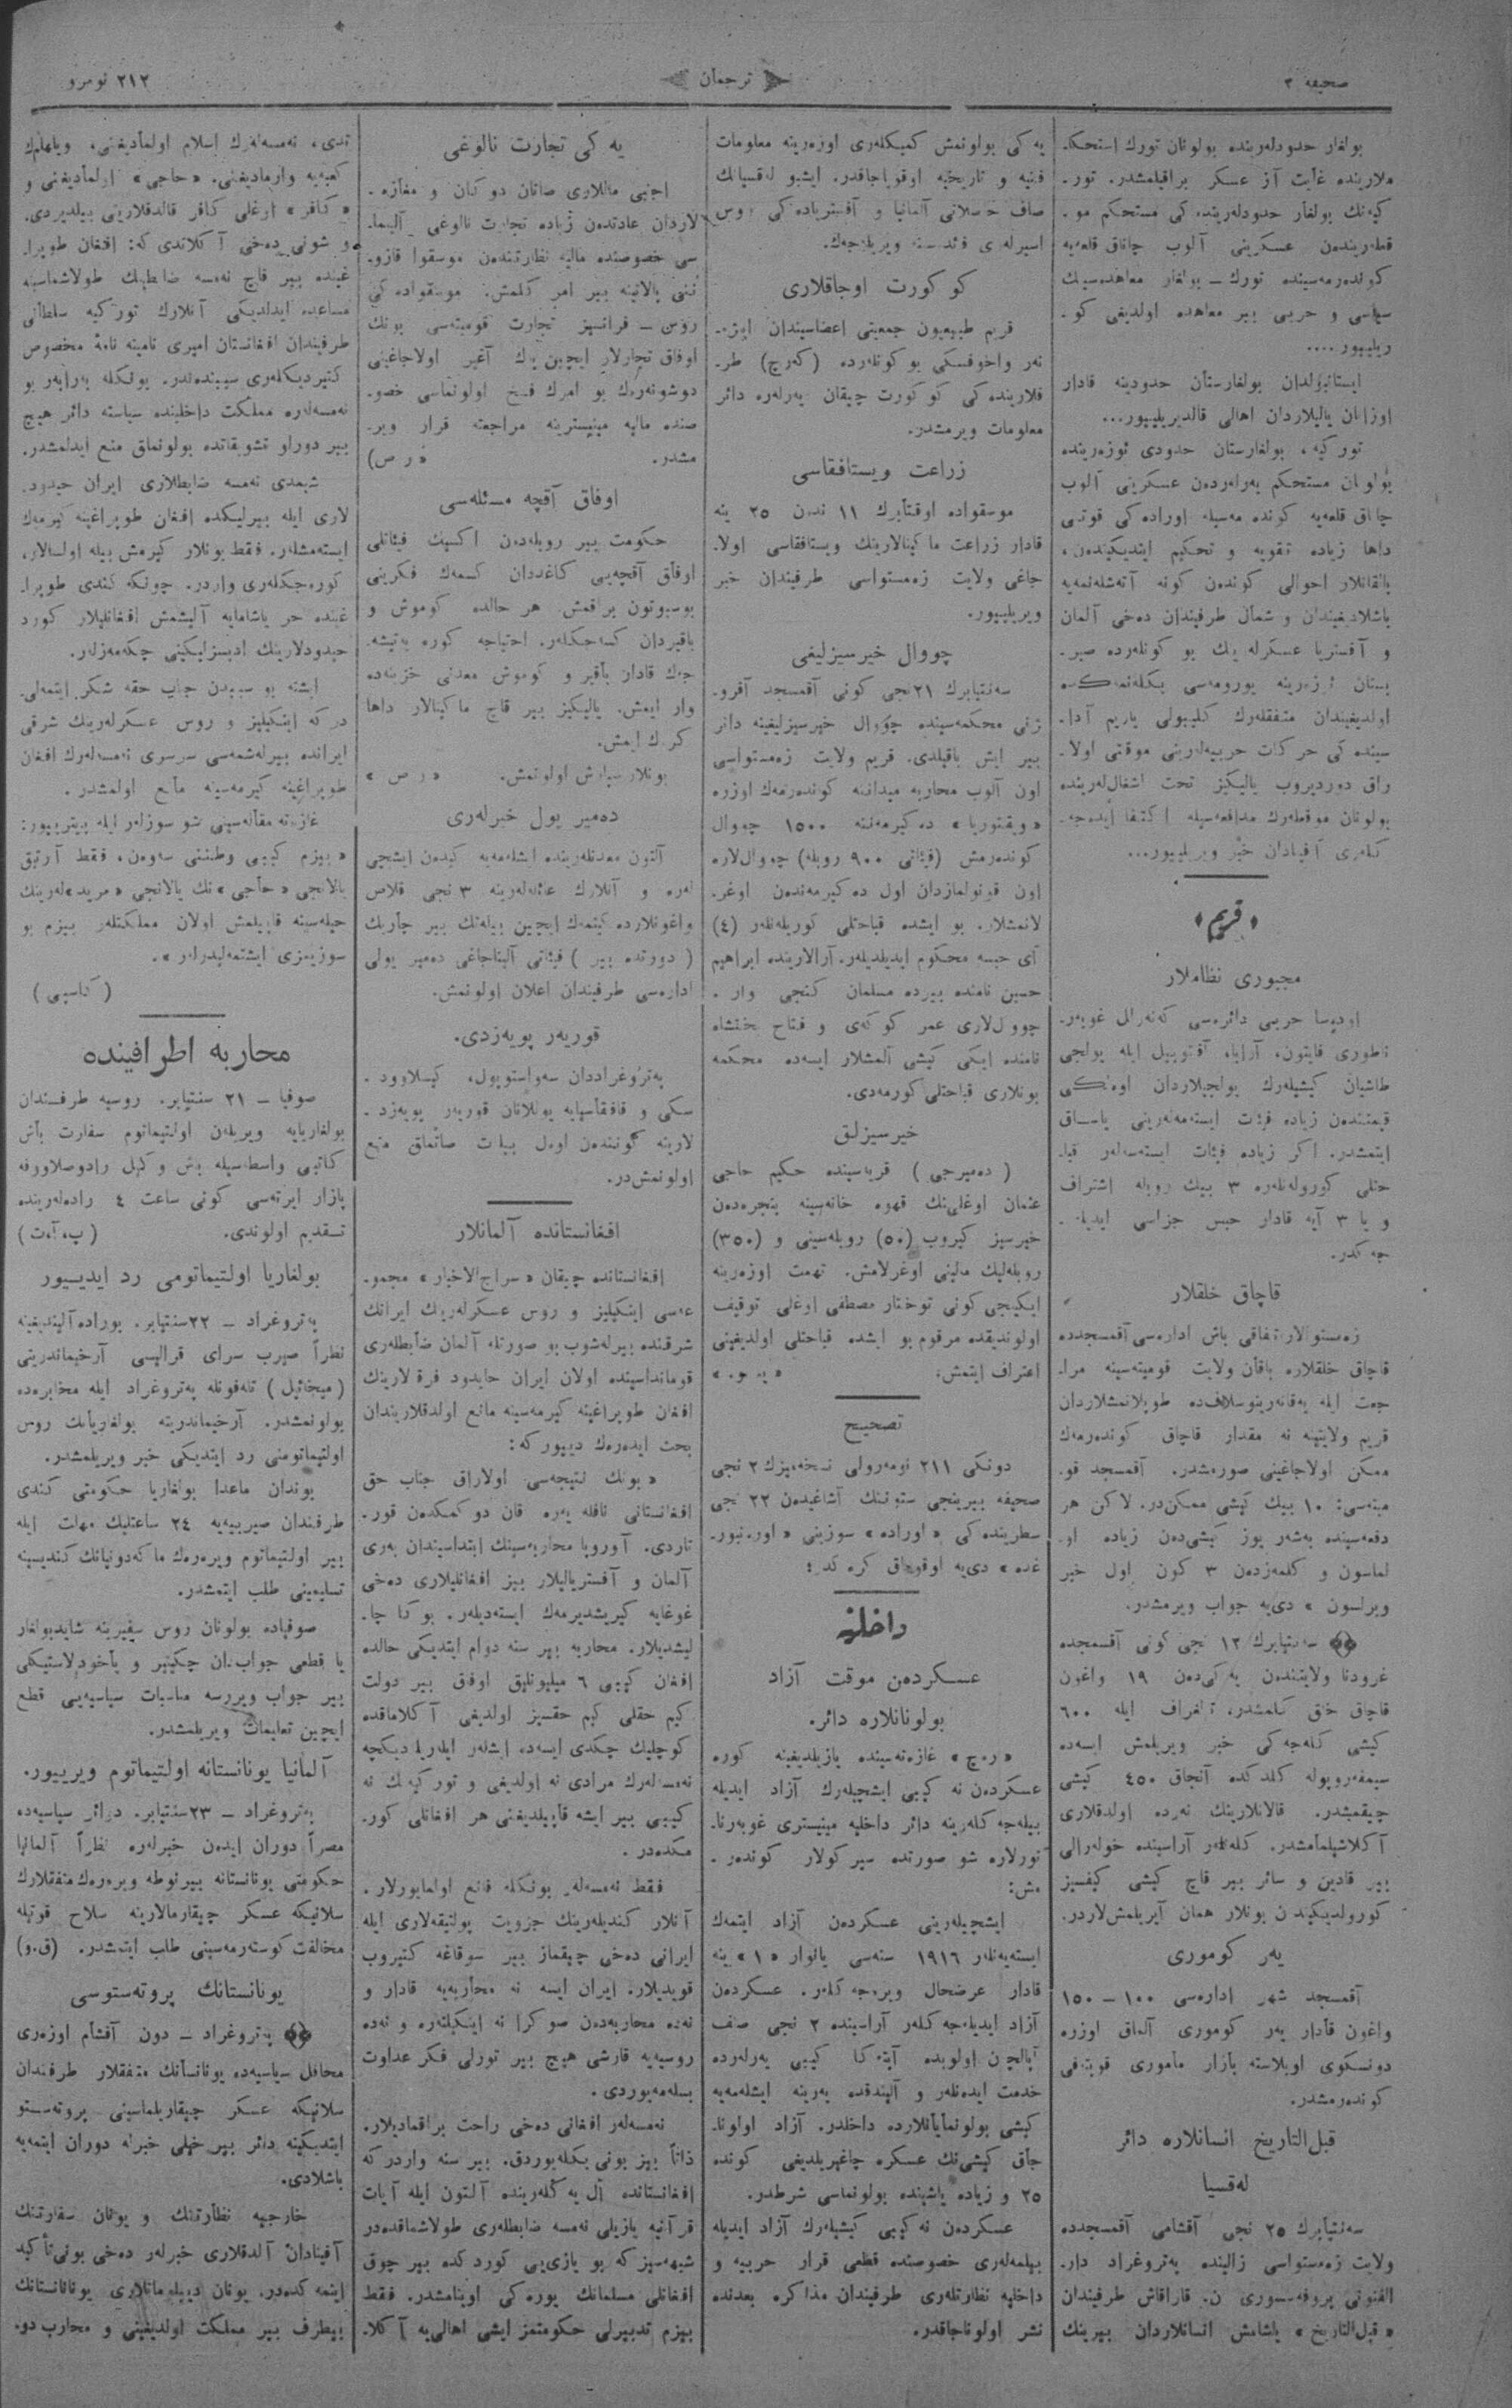 صحیفه ٢
ترجمان
٢١٢ نومرو
بولغار حدودلەرینده بولونان تورك استحكا-
ملارینده غایت آز عسكر براقیلمشدر. تور-
كیەنك بولغار حدودلەرینده كی مستحكم مو-
قعلەریندەن عسكرینی آلوب چاتاق قلعەیه
كوندەرمەسینده تورك ــ بولغار معاهدەسینك
سیاسی و حربی بیر معاهده اولدیغی كو-
ریلییور....
ایستانبولدان بولغارستان حدودینه قادار
اوزانان یالیلاردان اهالی قالدیریلییور...
توركیه، بولغارستان حدودی ئوزەرینده
بولونان مستحكم یەرلەردەن عسكرینی آلوب
چاتاق قلعەیه كوندەمەسیله اورادەكی قوتنی
داها زیاده تقویه و تحكیم ایتدیكیندەن،
بالقانلار احوالی كوندەن كونه آتەشلەنمەیه
باشلادیغیندان و شمال طرفیندان دەخی آلمان
و آفستریا عسكرلەرینك بو كونلەرده صیر-
بستان اوزەرینه یورومەسی بكلەنمەكده
اولدیغیندان متفقلەرك كلیبولی یاریم آدا-
سیندەكی حركات حربیەلەرینی موقتی اولا-
راق دوردیروب یالیكیز تحت اشغاللەرینده
بولونان موقعلەرك مدافعەسیله اكتفا ایدەجە-
كلەری آفینادان خبر ویریلییور...
«قریم»
مجبوری نظاملار
اودەسا حربی دائرەسی كەنەرال غوبەر-
ناطوری فایتون، آرابا، آفتومبیل ایله یولجی
طاشیان كیشیلەرك یولجیلاردان اوەلكی
قیمتندەن زیاده فیئات ایستەمەلەرینی یاساق
ایتمشدر. اكر زیاده فیئات ایستەسەلەر قبا-
حتلی كورولەنلەره ٣ بیك روبله اشتراف
و یا ٣ آیه قادار حبس جزاسی ایدیلە-
جەكدر.
قاچاق خلقلار
زەمستوالار اتفاقی باش ادارەسی آقمسجدده
قاچاق خلقلاره باقان ولایت قومیتەسینه مرا-
جعت ایله یەقاتەرینوسلافده طوپلانمشلاردان
قریم ولایتینه نه مقدار قاچاق كوندەرمەك
ممكن اولاجاغینی صورمشدر. آقمسجد قو-
میتەسی: ١٠ بیك كیشی ممكندر. لاكن هر
دفعەسینده بەشەر یوز كیشیدەن زیاده او-
لماسون و كلمەزدەن ٣ كون اول خبر
ویرلسون » دییه جواب ویرمشدر.
سەنتیابرك ١٢ نجی كونی آقسمجده
غرودنا ولایتندەن یەكیدەن ١٩ واغون
قاچاق خلق كلمشدر، تلغراف ایله ٦٠٠
كیشی كلەجەكی خبر ویریلمش ایسەده
سیمفەروپوله كلدكده آنجاق ٤٥٠ كیشی
چیقمشدر. قالانلارینك نەرده اولدقلاری
آكلاشیلمامشدر. كلەنلەر آراسینده خولەرالی
بیر قادین و سائر بیر قاچ كیشی كیفسز
كورولدیكیندن بونلار همان آیریلمشلاردر.
یەر كوموری
آقمسجد شهر ادارەسی ١٠٠ ــ ١٥٠
واغون قادار یەر كوموری آلماق اوزره
دونسكوی اوبلاستە بازار ماموری قوبتەفی
كوندەرمشدر.
قبل‌التاریخ انسانلاره دائر
لەقسیا
سەنتیابرك ٢٥ نجی آقشامی آقمسجدده
ولایت زەمستواسی زالینده پەتروغراد دار-
الفنونی پروفەسوری ن. قاراقاش طرفیندان
« قبل‌التاریخ » یاشامش انسانلاردان بیرینك
یەكی بولونمش كمیكلەری اوزەرینه معلومات
فنیه و تاریخیه اوقویاجاقدر. ایشبو لەقسیانك
صاف حاصلاتی آلمانیا و آفستریادەكی روس
اسیرلەری فائدەسنه ویریلەجەك.
كوكورت اوجاقلاری
قریم طبیعیون جمعیتی اعضاسیندان اینژە-
نەر واخوفسكی بو كونلەرده (كەرچ) طر-
فلاریندەكی كوكورت چیقان یەرلەره دائر
معلومات ویرمشدر.
زراعت ویستافقاسی
موسقواده اوقتابرك ١١ ندن ٢٥ ینه
قادار زراعت ماكینالارینك ویستافقاسی اولا-
جاغی ولایت زەمستواسی طرفیندان خبر
ویریلییور.
چووال خیرسیزلیغی
سەنتیابرك ٢١نجی كونی آقمسجد آقرو-
ژنی محكمەسینده چووال خیرسیزلیغینه دائر
بیر ایش باقیلدی. قریم ولایت زەمستواسی
اون آلوب محاربه میداننه كوندەرمەك اوزره
«ویقتوریا» دەكیرمەننه ١٥٠٠ چووال
كوندەرمش (فیئاتی ٩٠٠ روبله) چووال‌لاره
اون قونولمازدان اول دەكیرمەندەن اوغر-
لانمشلار. بو ایشده قباحتلی كوریلەنلەر (٤)
آی حبسه محكوم ایدیلدیلەر. آرالارینده ابراهیم
حسین نامنده بیرده مسلمان كنجی وار.
چووال‌لاری عمر كوكەی و فتاح بخشاه
نامنده ایكی كیشی آلمشلار ایسەده محكمه
بونلاری قباحتلی كورمەدی.
خیرسیزلق
(دەمیرجی) قریەسینده حكیم حاجی
عثمان اوغلی‌نك قهوه خانەسینه پنجرەدەن
خیرسیز كیروب (٥٠) روبلەسینی و (٣٥٠)
روبلەلیك مالینی اوغرلامش. تهمت اوزەرینه
ایكینجی كونی توختار مصطفی اوغلی توقیف
اولوندیقده مرقوم بو ایشده قباحتلی اولدیغینی
اعتراف ایتمش.
تصحیح
دونكی ٢١١ نومەرولی نسخەمیزك ٢ نجی
صحیفه بیرینجی ستوننك آشاغیدەن ٢٢ نجی
سطریندەكی «اوراده» سوزینی «اورنبور-
غده» دییه اوقوماق كرەكدر؛
داخلیه
عسكردەن موقت آزاد
بولونانلاره دائر.
«رەچ» غازەتەسینده یازیلدیغینه كوره
عسكردەن نه كیبی ایشچیلەرك آزاد ایدیله
بیلەجەكلەرینه دائر داخلیه مینیستری غوبەرنا-
تورلاره شو صورتده سیركولار كوندەر-
مش:
ایشچیلەرینی عسكردەن آزاد ایتمەك
ایستەیەنلەر ١٩١٦ سنەسی یانوار «١» ینه
قادار عرضحال ویرەجەكلەر. عسكردەن
آزاد ایدیلەجەكلەر آراسینده ٢ نجی صنف
خدمت ایدەنلەر و آلیندقده یەرینه ایشلەمەیه
كیشی بولونمایانلارده داخلدر. آزاد اولونا-
جاق كیشی‌نك عسكره چاغیریلدیغی كونده
٢٥ و زیاده یاشینده بولونماسی شرطدر.
عسكردەن نه كیبی كیشیلەرك آزاد ایدیله
بیلمەلەری خصوصنده قطعی قرار حربیه و
داخلیه نظارتلەری طرفیندان مذاكره بعدنده
نشر اولوناجاقدر.
یەكی تجارت نالوغی
اجنبی ماللاری صاتان دوكان و مغازە-
لاردان عادتدەن زیاده تجارت نالوغی آلینما-
سی خصوصنده مالیه نظارتندەن موسقوا قازیو-
ننی پالاتینه بیر امر كلمش. موسقوادەكی
روس ــ فرانسیز تجارت قومیتەسی بونك
اوفاق تجارلار ایچین پك آغیر اولاجاغینی
دوشونەرەك بو امرك فسخ اولونماسی خصو-
صنده مالیه مینیسترینه مراجعته قرار ویر-
مشدر. «ر ص»
اوفاق آقچه مسئلەسی
حكومت بیر روبلەدەن اكسیك فیئاتلی
اوفاق آقچەیی كاغددان كسمەك فكرینی
بوسبوتون براقمش هر حالده كوموش و
باقیردان كسەجكلەر. احتیاجه كوره یەتیشە-
جەك قادار باقیر و كوموش معدنی خزینەده
وار ایمش. یالیكیز بیر قاچ ماكینالار داها
كرەك ایمش.
بونلار سپارش اولونمش. «ر ص»
دەمیر یول خبرلەری
آلتون معدنلەرینده ایشلەمەیه كیدەن ایشچی
لەره و آنلارك عائلەلەرینه ٣ نجی قلاص
واغونلارده كیتمەك ایچین بیلەتك بیر چاریك
(دورتده بیر) فیئاتی آلیناجاغی دەمیر یولی
ادارەسی طرفیندان اعلان اولونمش.
قوریەر پویەزدی.
پەتروغراددان سەواستوپول، كیسلاوود-
سكی و قافقاسیایه یوللانان قوریەر پویەزد-
لارینه كونندەن اول بیلەت صاتماق منع
اولونمش‌در.
افغانستانده آلمانلار
افغانستانده چیقان «سراج‌الاخبار» مجمو-
عەسی اینكیلیز و روس عسكرلەرینك ایرانك
شرقنده بیرلەشوب بو صورتله آلمان ضابطلەری
قومانداسینده اولان ایران حایدود فرقەلارینك
افغان طوپراغینه كیرمەسینه مانع اولدقلاریندان
بحث ایدەرەك دییور كه:
«بونك نتیجەسی اولاراق جناب حق
افغانستانی نافله یەره قان دوكمكدەن قور-
تاردی. آوروپا محاربەسینك ابتداسیندان بەری
آلمان و آفستریالیلار بیز افغانلیلاری دەخی
غوغایه كیریشدیرمەك ایستەدیلەر. بوكا چا-
لیشدیلار. محاربه بیر سنه دوام ایتدیكی حالده
افغان كیبی ٦ میلیونلیق اوفاق بیر دولت
كیم حقلی كیم حقسیز اولدیغی آكلاماقده
كوچلیك چكدی ایسەده ایشلەر ایلەریلەدیكچه
نەمسەلەرك مرادی نه اولدیغی و توركیەنك نه
كیبی بیر ایشه قاپیلدیغنی هر افغانلی كور-
مكدەدر.
فقط نەمسەلەر بونكله قانع اولمایورلار.
آنلار كندیلەرینك جزویت پولتیقەلاری ایله
ایرانی دەخی چیقماز بیر سوقاغه كتیروب
قویدیلار. ایران ایسه نه محاربەیه قادار و
نەده محاربەدەن صوكرا نه اینكیلتەره و نەده
روسیەیه قارشی هیچ بیر تورلی فكر عداوت
بسلەمەیوردی.
نەمسەلەر افغانی دەخی راحت براقمادیلار.
ذاتاً بیز بونی بكلەیوردق. بیر سنه واردر كه
افغانستانده ال یەكلەرینده آلتون ایله آیات
قرآنیه یازیلی نەمسه ضابطلەری طولاشماقدەدر
شبهەسیز كه بو یازی‌یی كوردكده بیر چوق
افغانلی مسلمانك یورەكی اوینامشدر. فقط
بیزم تدبیرلی حكومتمز ایشی اهالی‌یه آكلا-
تدی، نەمسەلەرك اسلام اولمادیغنی، ویلهلم‌ك
كعبەیه وارمادیغنی. «حاجی» اولمادیغنی و
«كافر» اوغلی كافر قالدقلارینی بیلدیردی.
و شونی دەخی آكلاتدی كه: افغان طوپرا-
غینده بیر قاچ نەمسه ضابطینك طولاشماسینه
مساعده ایدلدیكی آنلارك توركیه سلطانی
طرفیندان افغانستان امیری نامینه نامهٔ مخصوص
كتیردیكلەری سبیندەندر. بونكله بەرابەر بو
نەمسەلەره مملكت داخلینده سیاسته دائر هیچ
بیر دورلو تشویقاتده بولونماق منع ایدلمشدر.
شیمدی نەمسه ضابطلاری ایران حیدود-
لاری ایله بیرلیكده افغان طوپراغینه كیرمەك
ایستەمشلەر. فقط بونلار كیرمش بیله اولسالار،
كورەجكلەری واردر. چونكه كندی طوپرا-
غینده حر یاشامایه آلیشمش افغانلیلار كورد
حیدودلارینك ادبسزلیكینی چكەمەزلەر.
ایشته بو سببدن جناب حقه شكر ایتمەلی-
در كه اینكیلیز و روس عسكرلەرینك شرقی
ایرانده بیرلەشمەسی سرسری نەمسەلەرك افغان
طوپراغینه كیرمەسینه مانع اولمشدر.
غازەته مقالەسینی شو سوزلەر ایله بیتیرییور:
«بیزم كیبی وطننی سەوەن، فقط آرتیق
یالانجی «حاجی»نك یالانجی «مرید»لەرینك
حیلەسینه قاپیلمش اولان مملكتلەر بیزم بو
سوزیمزی ایشتمەلیدرلەر».
(كاسپی)
محاربه اطرافینده
صوفیا ــ ٢١ سنتیابر. روسیه طرفندان
بولغاریایه ویریلەن اولتیماتوم سفارت باش
كاتبی واسطەسیله باش وكیل رادوسلاووفه
بازار ایرتەسی كونی ساعت ٤ رادەلەرینده
تقدیم اولوندی. (پ.آ.ت)
بولغاریا اولتیماتومی رد ایدییور
پەتروغراد ــ ٢٢سنتیابر. بوراده آلیندیغینه
نظراً صیرب سرای قرالیسی آرخیماندریتی
(میخائیل) تلەفونله پەتروغراد ایله مخابرەده
بولونمشدر. آرخیماندریته بولغاریانك روس
اولتیماتومنی رد ایتدیكی خبر ویریلمشدر.
بوندان ماعدا بولغاریا حكومتی كندی
طرفیندان صیربیەیه ٢٤ ساعتلیك مهلت ایله
بیر اولتیماتوم ویرەرەك ماكەدونیانك كندیسینه
تسلیمینی طلب ایتمشدر.
صوفیاده بولونان روس سفیرینه شاید بولغار
یا قطعی جواب‌دان چكینیر و یاخود لاستیكی
بیر جواب ویررسه مناسبات سیاسیەیی قطع
ایچین تعلیمات ویریلمشدر.
آلمانیا یونانستانه اولتیماتوم ویرییور.
پەتروغراد ــ ٢٣سنتیابر. دوائر سیاسیەده
مصراً دوران ایدەن خبرلەره نظراً آلمانیا
حكومتی یونانستانه بیر نوطه ویرەرەك متفقلارك
سلانیكه عسكر چیقارمالارینه سلاح قوتیله
مخالفت كوستەرمەسینی طلب ایتمشدر. (ق.و)
یونانستانك پروتەستوسی
پەتروغراد ــ دون آقشام اوزەری
محافل سیاسیەده یونانسانك متفقلار طرفیندان
سلانیكه عسكر چیقاریلماسینی پروتەستو
ایتدیكینه دائر بیر خیلی خبرلەر دوران ایتمەیه
باشلادی.
خارجیه نظارتنك و یونان سفارتنك
آفینادان آلدقلاری خبرلەر دەخی بونی تأكید
ایتمەكدەدر. یونان دیپلوماتلاری یونانستانك
بیطرف بیر مملكت اولدیغینی و محارب دو-